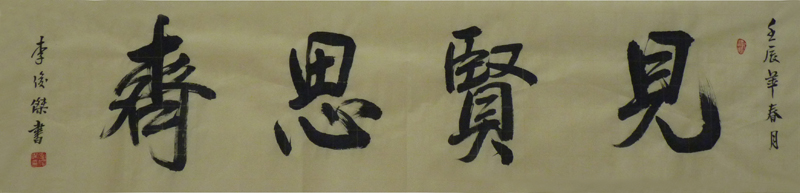 壬辰年春月
見賢思齊
李俊傑書